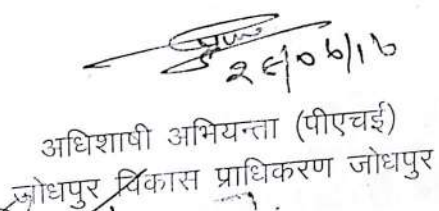 अधिशाषी अभियन्ता (पीएचई)
जोधपुर विकास प्राधिकरण जोधपुर